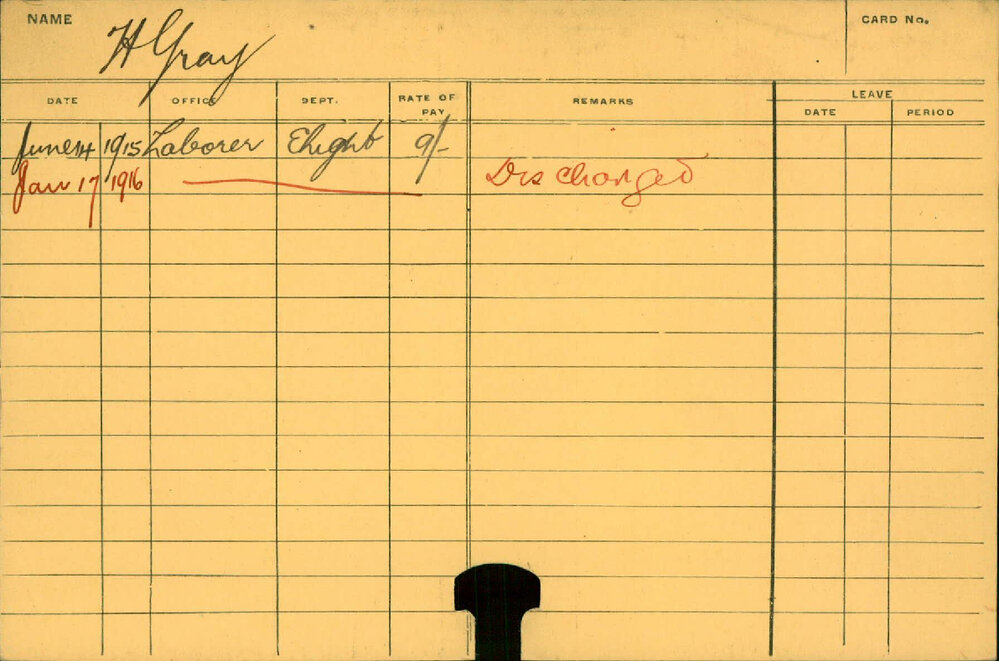 NAME H Gray CARD No.
DATE OFFICE DEPT. RATE OF PAY REMARKS LEAVE
DATE PERIOD
June 14 1915 Laborer Elight 9/-
Jan 17 1916 Discharged